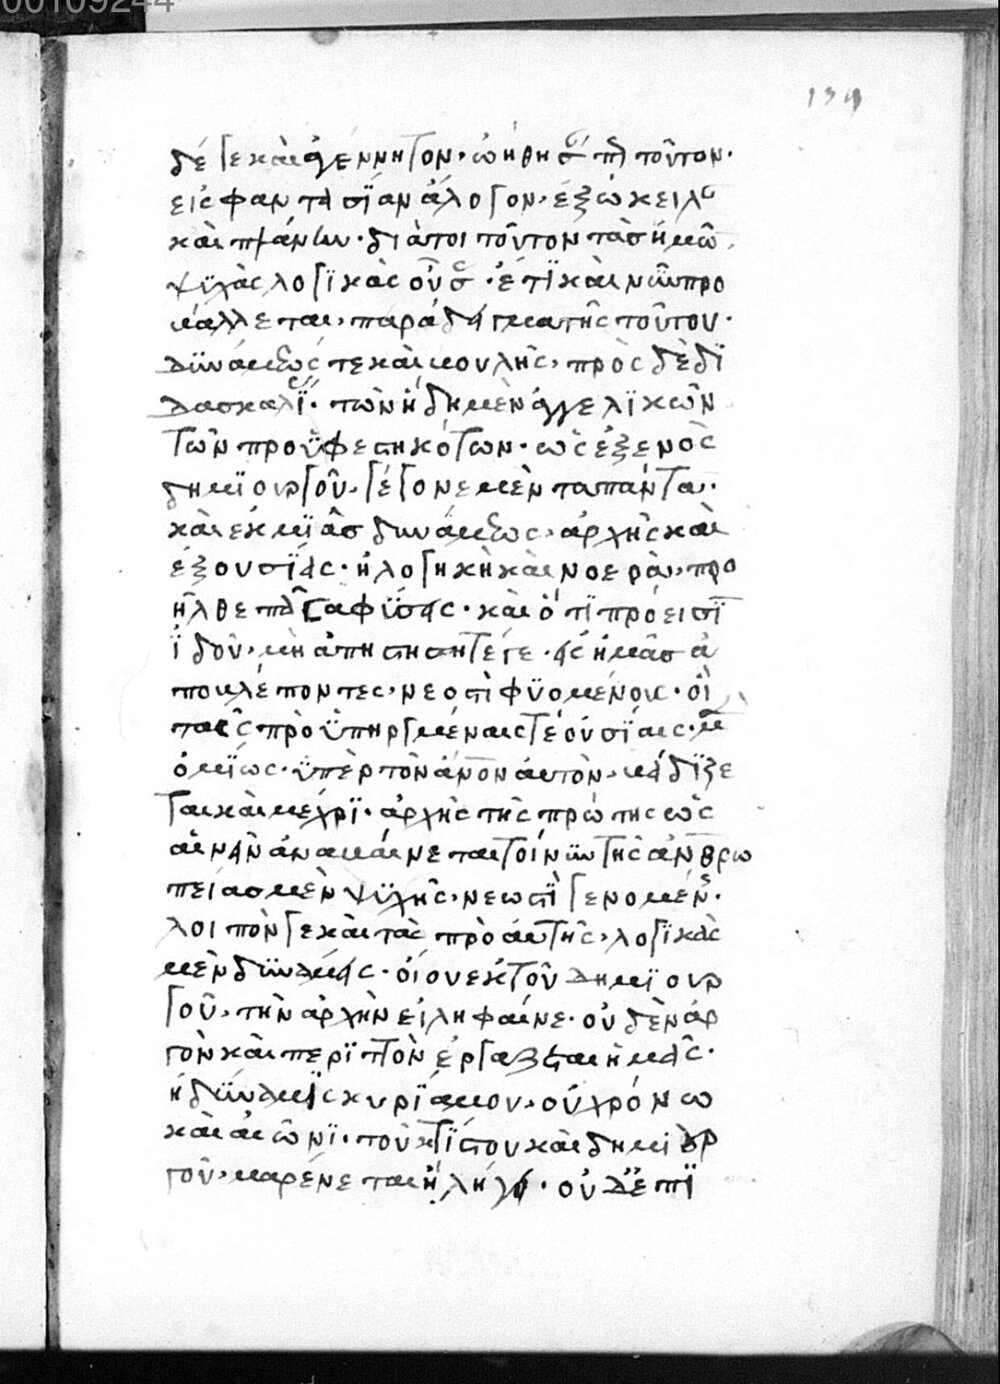 00109244
139
δέ γε καὶ ἀγέννητον· ὠήθησ πλ τοῦτον·
εἰς φαντασΐαν ἄλογον· ἐξώκειλ
καὶ πλάνων· διάτοι τοῦτον τὰσ ἡμῶ
ψϋλὰς λογϊκὰς οὔσ· ἔτϊ καὶ νῦν προ
βάλλεται, παραδείγματα τῆς τούτου·
δϋνάμεώς τε καὶ βουλῆς, πρὸς δὲ δϊ
δασκαλΐ· τῶν ἤδη μὲν ἀγγελϊκῶν
τῶν προϋφεστηκότων· ὡς ἐξ ἑνὸς
δημϊουργοῦ, γέγονε μὲν τα πάντα·
καὶ ἐκ μϊᾶσ δυνάμεως, ἀρχῆς καὶ
ἐξουσΐας· ἡ λογηκὴ καὶ νοερὰ, προ
ῆλθε φΰσις· καὶ ὅτϊ πρόεισϊ
ΐδοῦ, μὴ ἀπηστησητέ γε· εἰς ἡμᾶσ ἀ
ποβλέποντες, νεοστὶ φϋομένοις· οἱ
ταῖς πρὸϋπηργμέναις τέ οὐσΐαις·
ὁμΐως· ϋπὲρ τὸν ἄνον ἀυτὸν, βαδΐζε
ται καὶ μέχρϊ· ἀρχῆς τῆς πρώτης ὡς
ἀναβαίνεται τοίνϋν τῆς ἀνθρω
πείασ μὲν ψϋχῆς· νεωστῒ γενομέν·
λοιπὸν γε καὶ τὰς πρὸ ἀυτῆς, λογϊκὰς
μὲν δϋνάμεις· οἱονεκ τοῦ δημϊουρ
γοῦ, τὴν ἀρχὴν εἰληφαίνε· οὐδὲν ἀρ
γὸν καὶ περϊττὸν ἐργάζεται ἡμᾶς·
ἡ δϋναμϊς κυρΐα μου, οὐ χρόνω
καὶ αἰῶνϊ· τοῦ κτΐστου καὶ δημιουρ
γοῦ, μαρένεται ἢ λήγει· οὐδὲ ἐπῒ